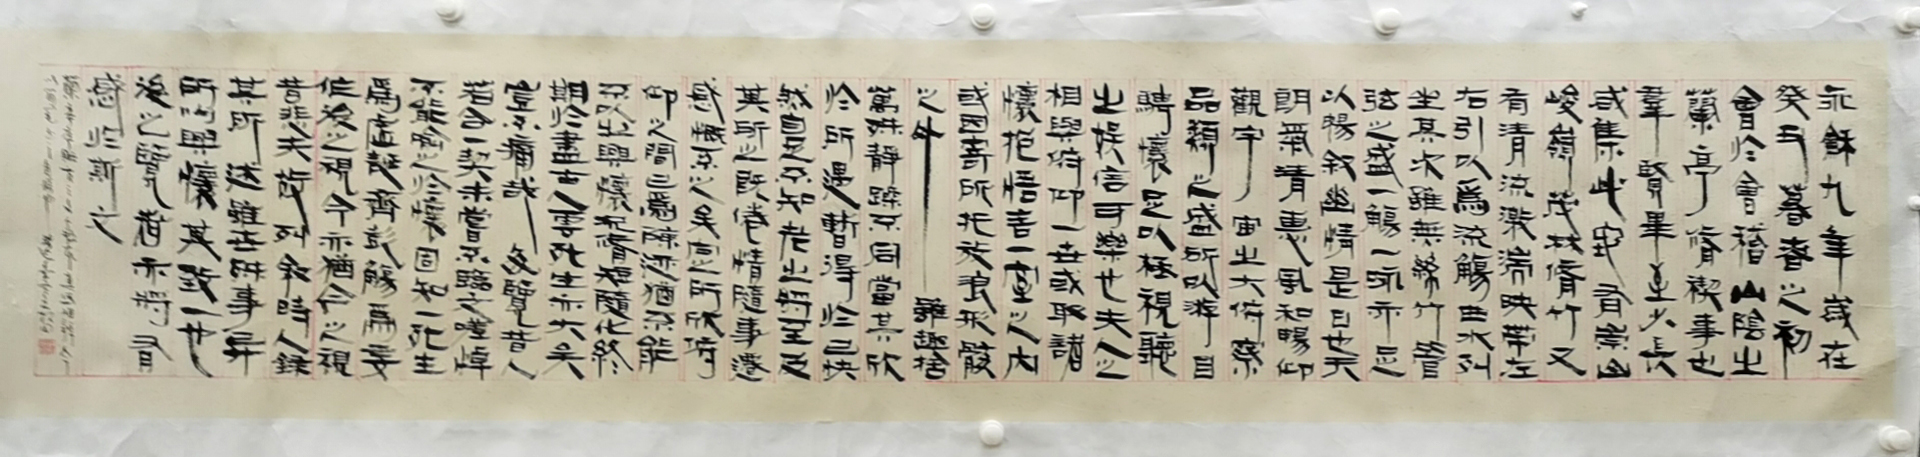 永龢九年歲在
癸丑暮春之初
會於會稽山陰之
蘭亭脩禊事也
羣賢畢至少長
咸集此地有崇山
峻嶺茂林脩竹又
有清流激湍映帶左
右引以爲流觴曲水列
坐其次雖無絲竹管
弦之盛一觴一詠亦足
以暢敘幽情是日也天
朗氣清惠風和暢仰
觀宇宙之大俯察
品類之盛所以遊目
騁懷足以極視聽
之娛信可樂也夫人之
相與俯仰一世或取諸
懷抱悟言一室之內
或因寄所托放浪形骸
之外雖趣捨
萬殊靜躁不同當其欣
於所遇暫得於己快
然自足不知老之將至及
其所之既倦情隨事遷
感慨係之矣向之所欣俯
仰之間已爲陳迹猶不能
不以之興懷況脩短隨化終
期於盡古人云死生亦大矣
豈不痛哉每覽昔人
若合一契未嘗不臨文嗟悼
不能喻之於懷固知一死生
爲虛誕齊彭殤爲妄
作後之視今亦猶今之視
昔悲夫故列敘時人錄
其所述雖世殊事異
所以興懷其致一也
後之覽者亦將有
感於斯文